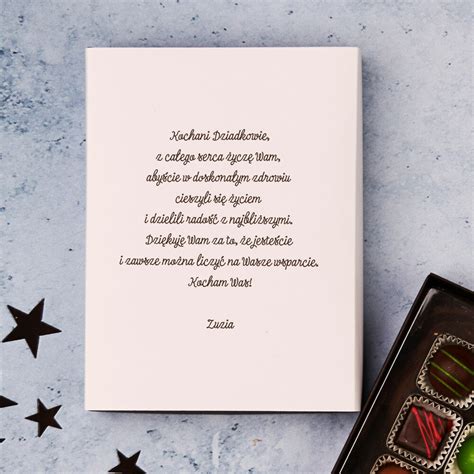 Kochani Dziadkowie,
z całego serca życzę Wam,
abyście w doskonałym zdrowiu
cieszyli się życiem
i dzielili radość z najbliższymi.
Dziękuję Wam za to, że jesteście
i zawsze można liczyć na Wasze wsparcie.
Kocham Was!
Zuzia